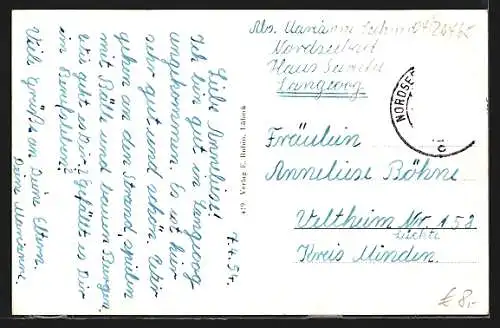 7.4.54.
Liebe Annelise!
Ich bin gut in Langeoog
angekommen. Es ist hier
sehr gut und schön. Wir
gehen an den Strand, spielen
mit Bälle und bauen Burgen.
Wie geht es Dir? Gefällt es Dir
im Berufsleben?
Viele Grüße an Deine Eltern.
Deine Marianne.
479 Verlag E. Rubin, Lübeck
Abs. Marianne
Nordseebad
Haus
Langeoog
NORDSEE
Fräulein
Anneliese Böhne
Veltheim Nr 153
Kreis Minden.
€ 8,-